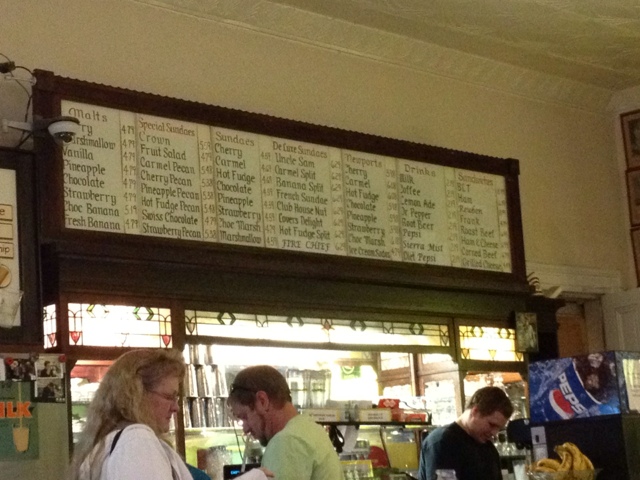 Malts
Marshmallow
Vanilla
Pineapple
Chocolate
Strawberry
Choc Banana
Fresh Banana
Special Sundaes
Crown
Fruit Salad
Carmel Pecan
Cherry Pecan
Pineapple Pecan
Hot Fudge Pecan
Swiss Chocolate
Strawberry Pecan
Sundaes
Cherry
Carmel
Hot Fudge
Chocolate
Pineapple
Strawberry
Choc Marsh
Marshmallow
De Luxe Sundaes
Uncle Sam
Carmel Split
Banana Split
French Sundae
Club House Nut
Lovers Delight
Hot Fudge Split
FIRE CHIEF
Newports
Cherry
Carmel
Hot Fudge
Chocolate
Pineapple
Strawberry
Choc Marsh
Ice Cream Sodas
Drinks
Milk
Coffee
Lemon Ade
Dr Pepper
Root Beer
Pepsi
Sierra Mist
Diet Pepsi
Sandwiches
BLT
Ham
Reuben
Frank
Roast Beef
Ham & Cheese
Corned Beef
Grilled Cheese
PEPSI